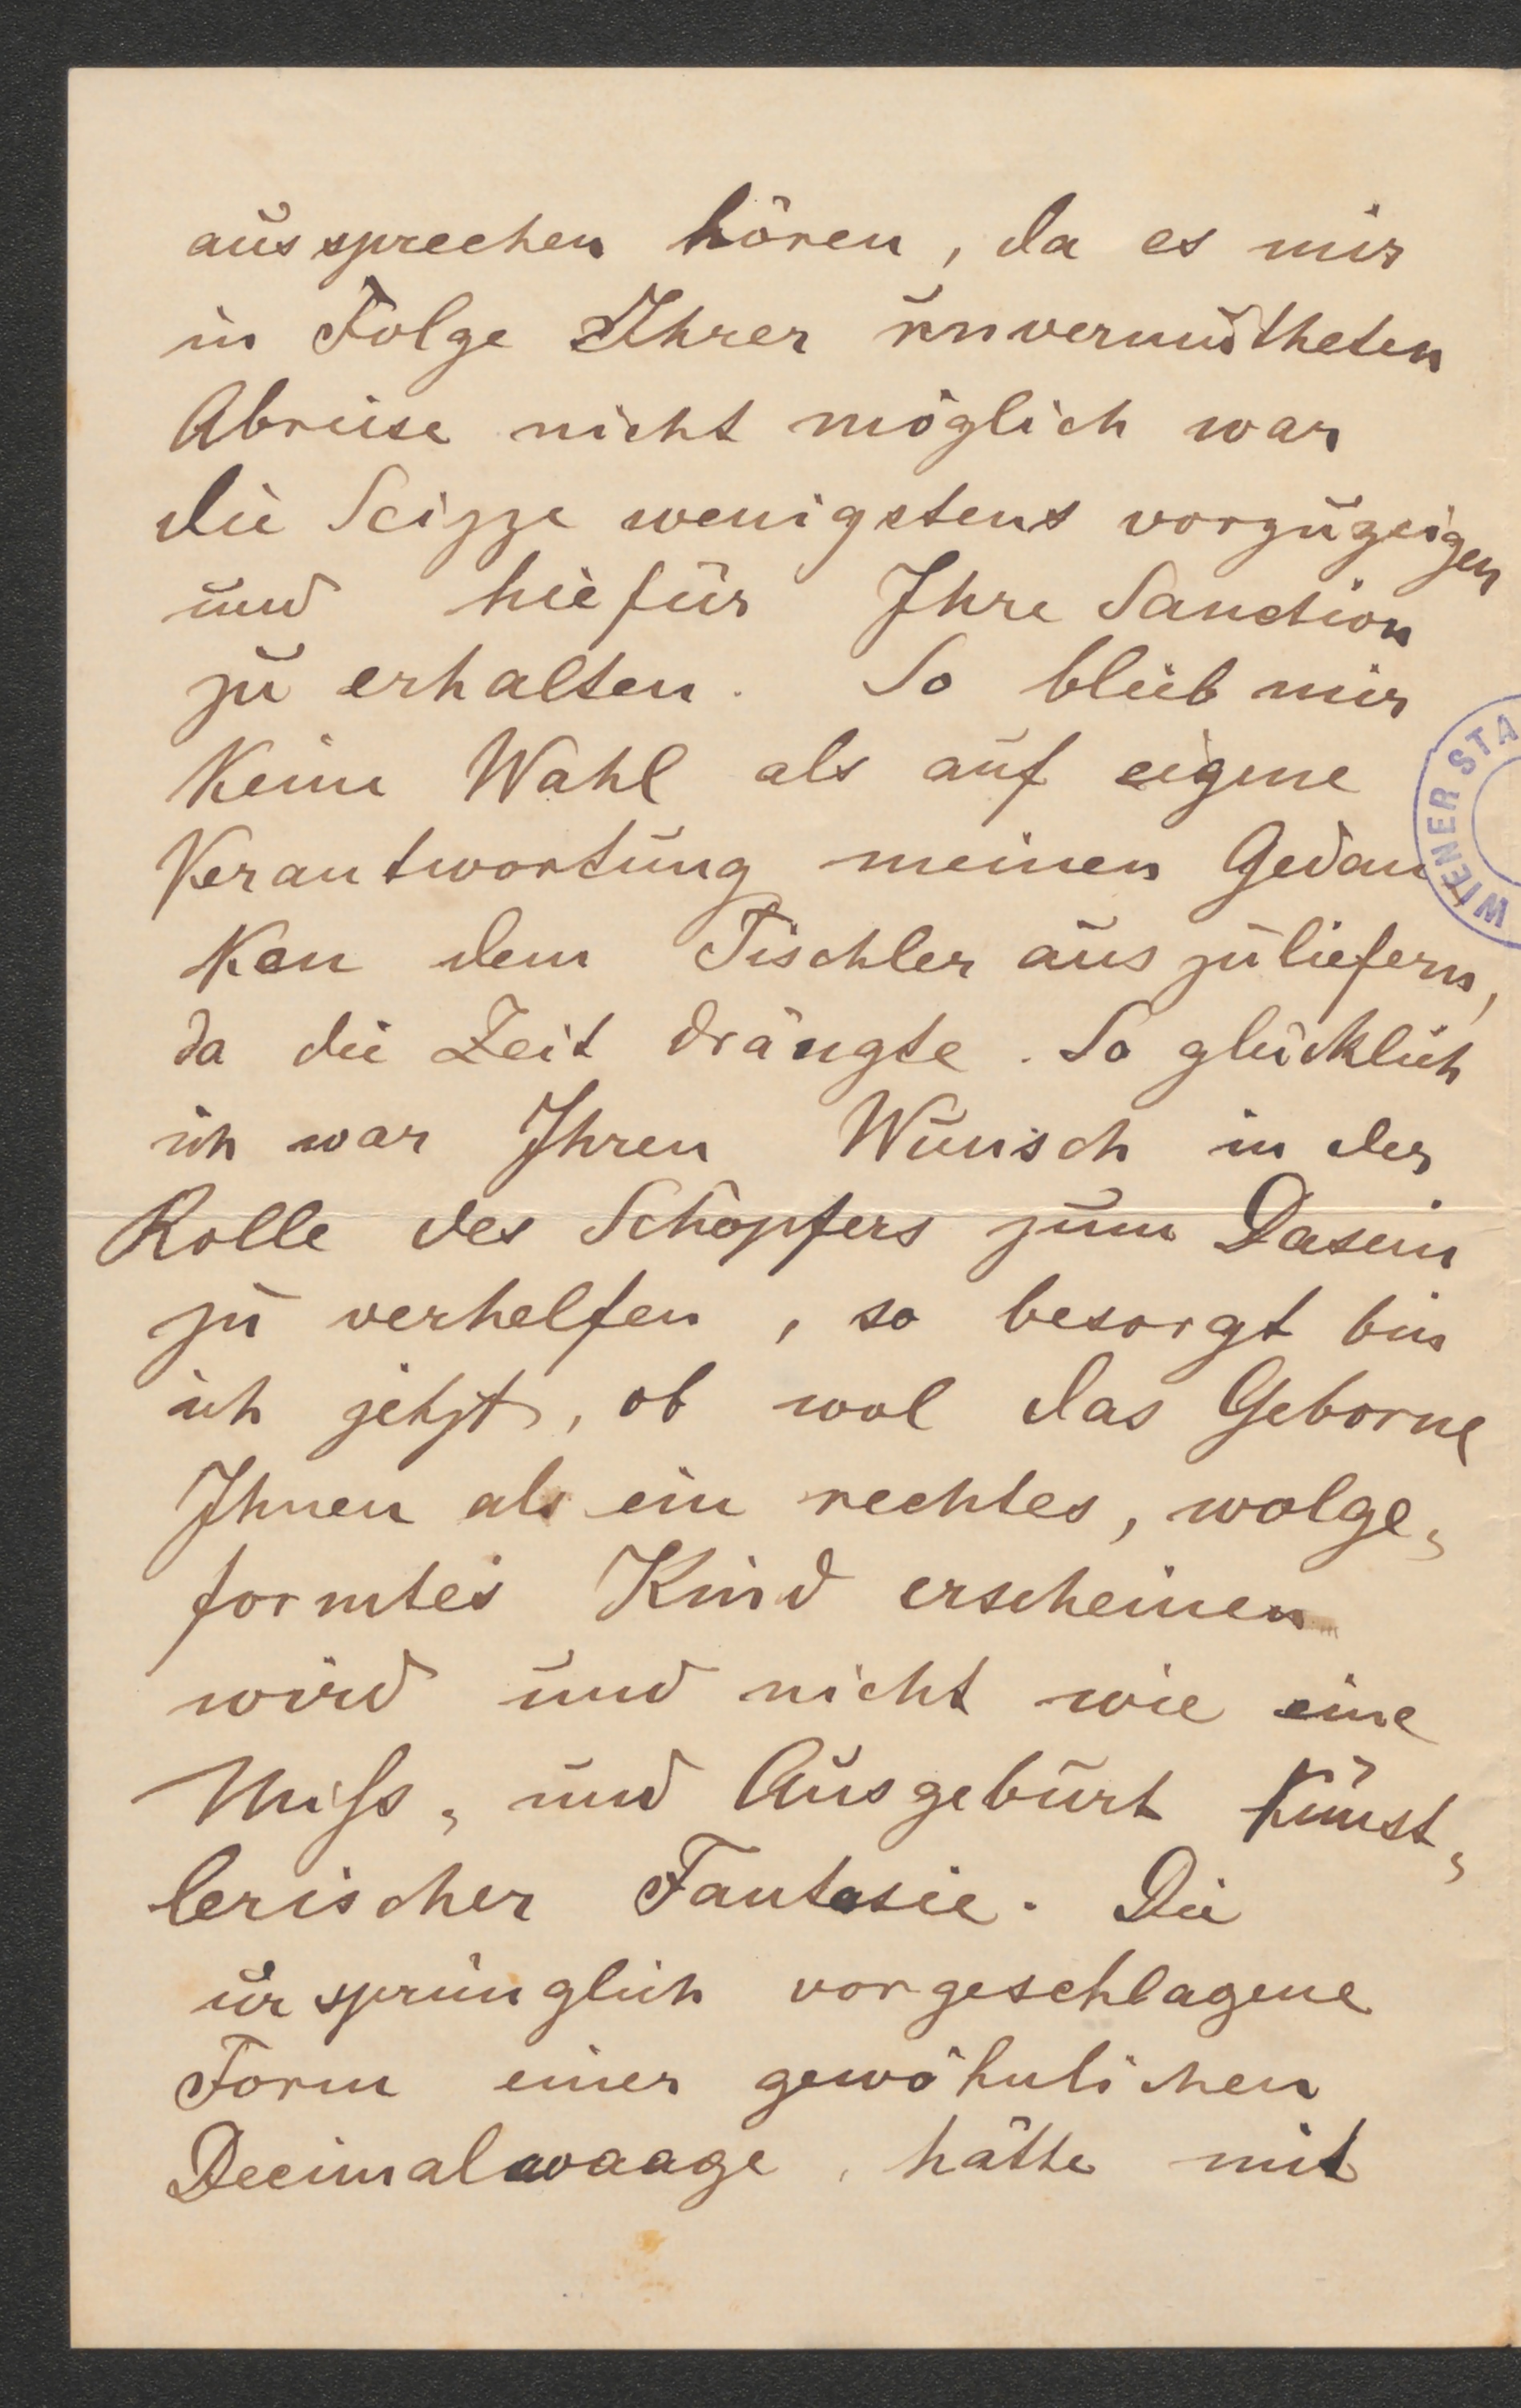 aussprechen hören, da es mir
in Folge Ihrer unvermutheten
Abreise nicht möglich war
die Scizze wenigstens vorzuzeigen
und hiefür Ihre Sanction
zu erhalten. So blieb mir
keine Wahl als auf eigene
Verantwortung meinen Gedan
ken dem Tischler auszuliefern,
da die Zeit drängte. So glücklich
ich war Ihren Wunsch in der
Rolle des Schöpfers zum Dasein
zu verhelfen, so besorgt bin
ich jetzt, ob wol das Geborne
Ihnen als ein rechtes, wolge-
formtes Kind erscheinen
wird und nicht wie eine
Miss- und Ausgeburt künst-
lerischer Fantasie. Die
ursprünglich vorgeschlagene
Form einer gewöhnlichen
Decimalwaage, hätte mit
WIENER STA